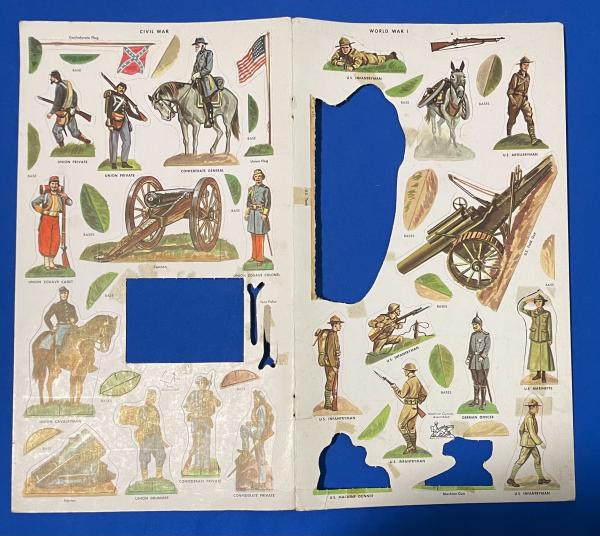 CIVIL WAR
Confederate Flag
BASE
UNION PRIVATE
UNION PRIVATE
CONFEDERATE GENERAL
BASE
Union Flag
BASE
BASES
BASE
UNION ZOUAVE CADET
Cannon
UNION ZOUAVE COLONEL
BASE
Tent Poles
UNION CAVALRYMAN
BASES
BASE
Mortar
UNION DRUMMER
CONFEDERATE PRIVATE
CONFEDERATE PRIVATE
WORLD WAR I
U.S. INFANTRYMAN
BASE
BASES
U.S. ARTILLERYMAN
BASES
BASE
BASE
U.S. INFANTRYMAN
BASES
U.S. INFANTRYMAN
GERMAN OFFICER
U.S. MARINETTE
Machine Gunner,
Assembled
BASE
U.S. INFANTRYMAN
U.S. MACHINE GUNNER
Machine Gun
U.S. INFANTRYMAN